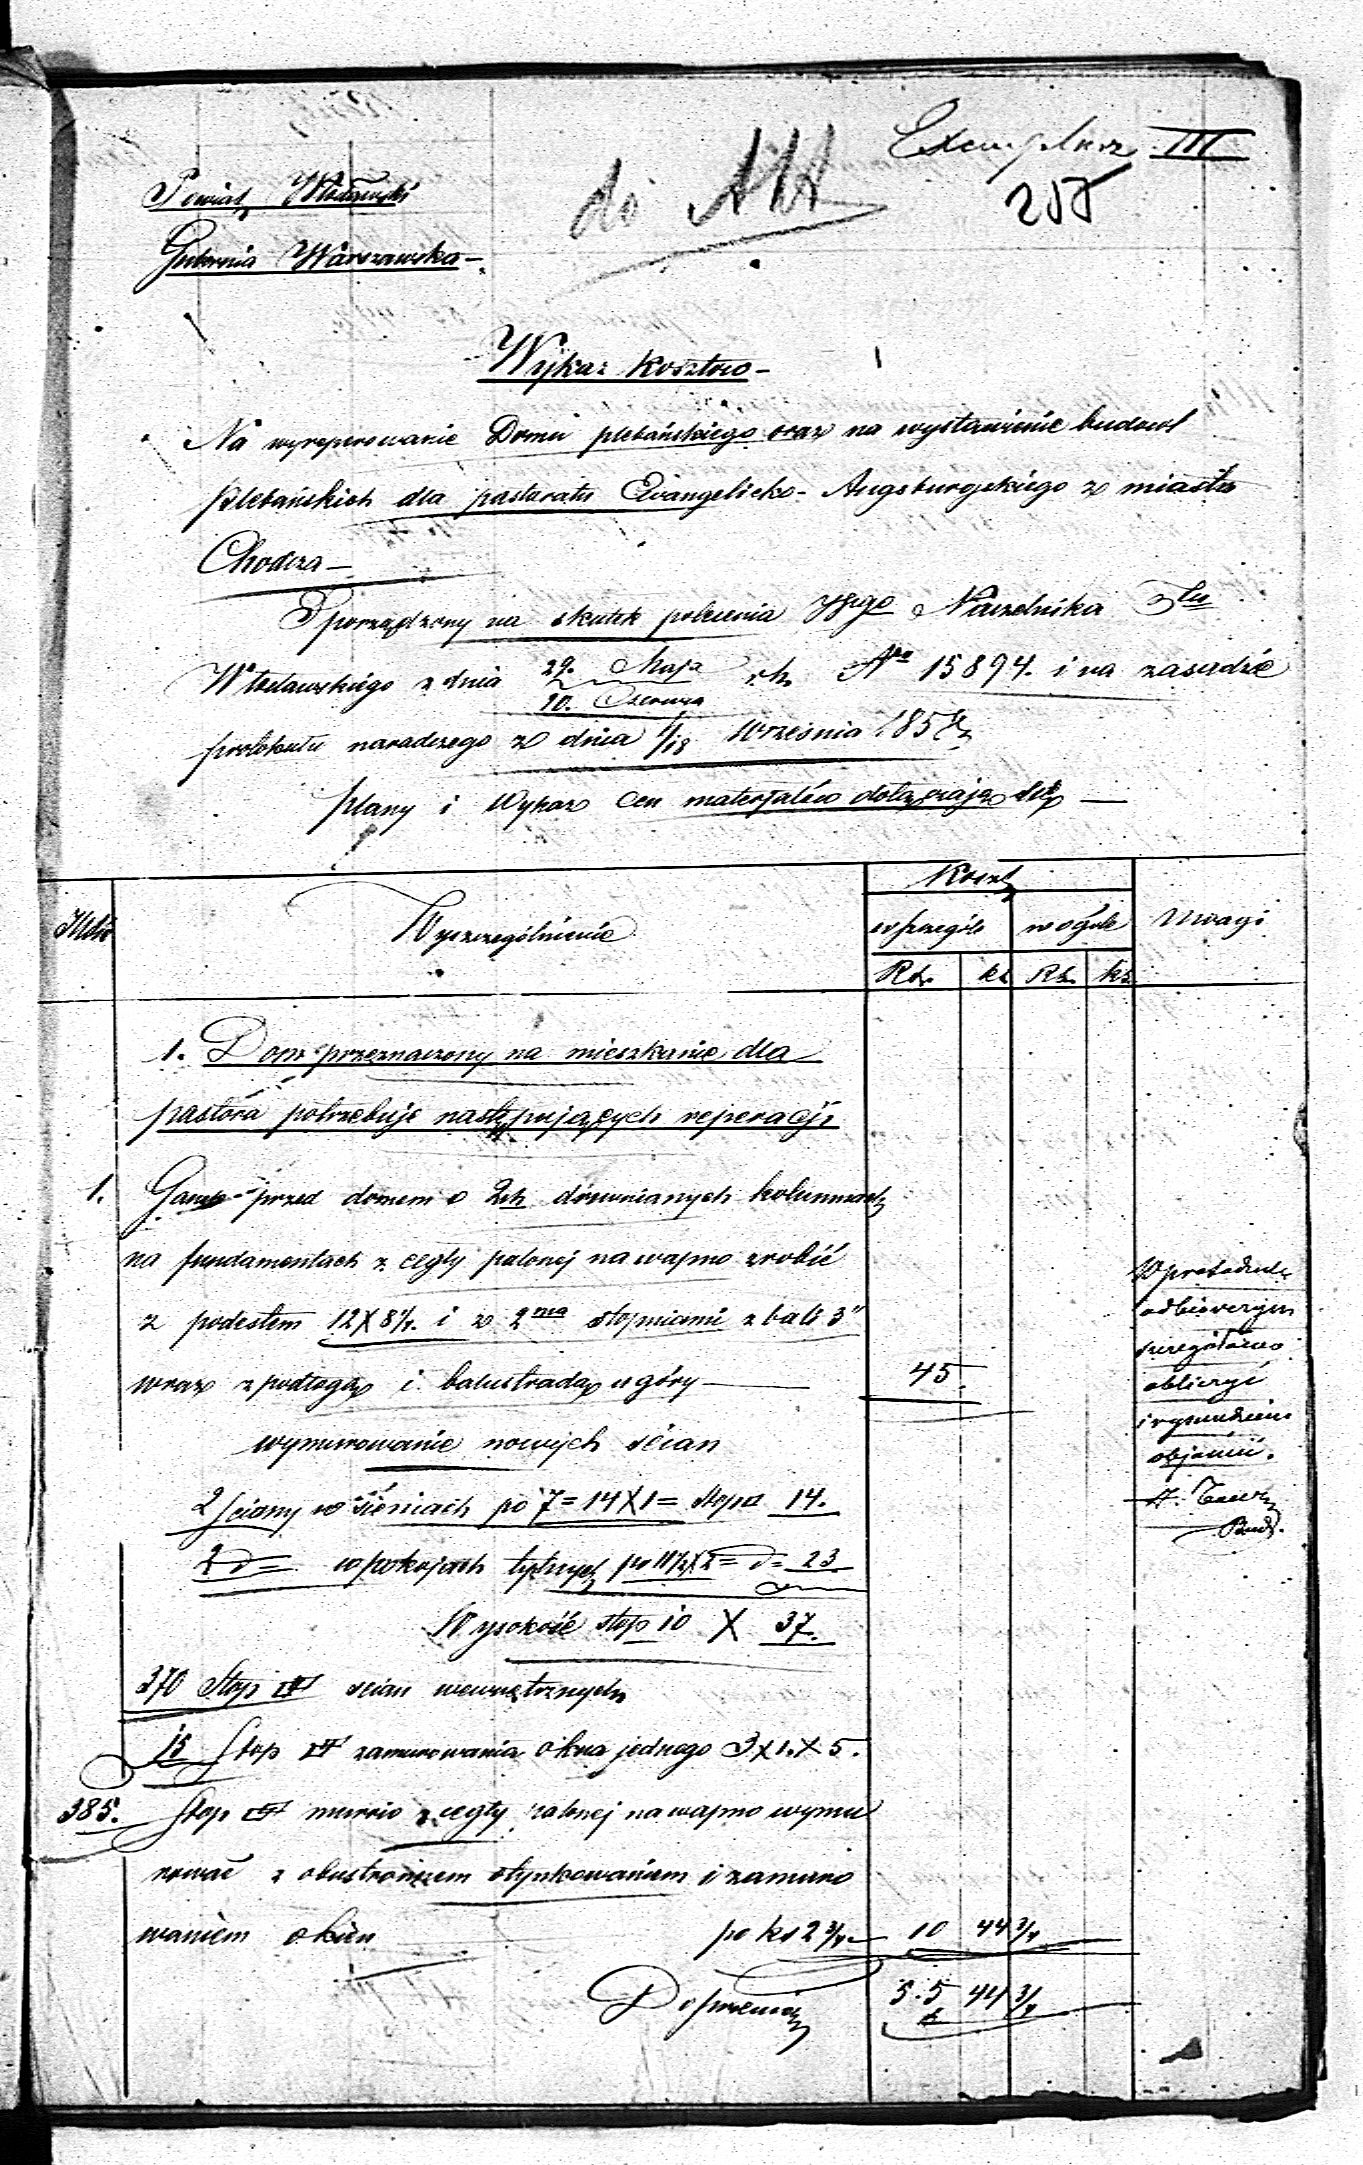 Exemplarz III
do Akt
257
Powiat Włocławski
Gubernia Warszawska
Wykaz kosztow
Na wyreperowanie Domu plebańskiego oraz na wystawienie budowl
plebańskich dla pastoratu Ewangelicko-Augsburgskiego w miastu
Chodcza
Sporządzony na skutek polecenia Naczelnika
Włocławskiego z dnia 29. Maja / 10. Czerwca rb. No 15894. i na zasadzie
protokułu naradczego z dnia /18 Września 1857
plany i Wykaz cen materjałów dołączają się
Ilość
Wyszczególnienie
Koszt
w szczególe
w ogóle
Uwagi
Rs. k. Rs. k.
1. Dom przeznaczony na mieszkanie dla
pastora potrzebuje następujących reperacji
1. Ganek przed domem o 2ch drewnianych kolumnach
na fundamentach z cegły palonej na wapno zrobić
z podestem 12X8½. i z 2ma stopniami z bali 3"
wraz z podłogą i balustradą u góry 45.
wymurowanie nowych ścian
2 ściany w sieniach po 7=14X1= Stopa 14.
2 d= w pokojach tylnych po 11½X2= d= 23.
Wysokość stop 10 X 37.
370 Stop ścian wewnętrznych
15 Stop zamurowania okna jednego 3X1.X5.
385. Stop murów z cegły palonej na wapno wymu
rować z obustronnem otynkowaniem i zamuro
waniem okien po ks 2¾ 10 44¾
Do przenies 55 44¾
odbiorczym
szczegółowo
obliczyć
i rysunkiem
objaśnić.
Bud.